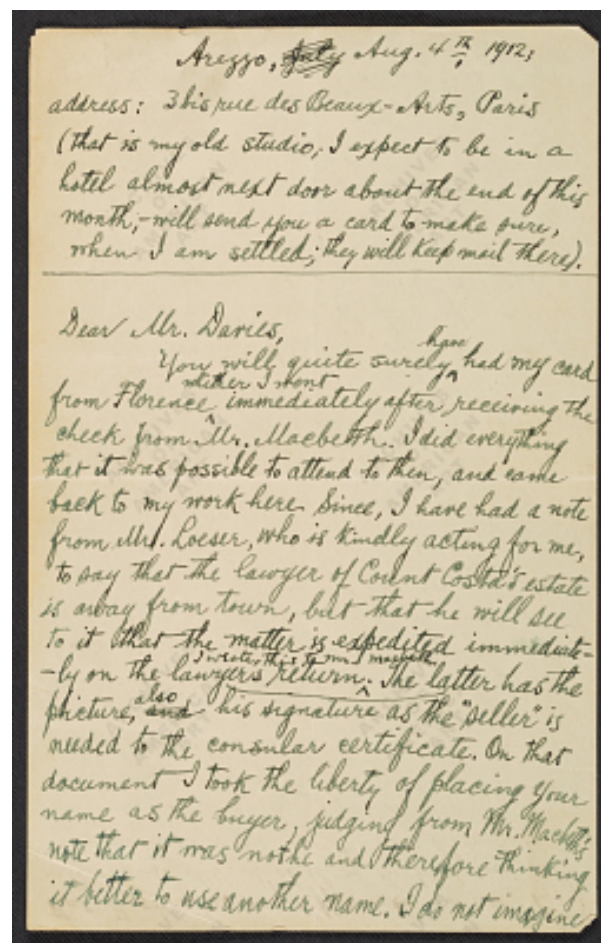 Arezzo, July Aug. 4th, 1912;
address: 3 bis rue des Beaux-Arts, Paris
(that is my old studio; I expect to be in a
hotel almost next door about the end of this
month;- will send you a card to make sure,
when I am settled; they will keep mail there).
Dear Mr. Davies,
You will quite surely have had my card
from Florence whither I went immediately after receiving the
check from Mr. Macbeth. I did everything
that it was possible to attend to then, and came
back to my work here. Since, I have had a note
from Mr. Loeser, who is kindly acting for me,
to say that the lawyer of Count Costa's estate
is away from town, but that he will see
to it that the matter is expedited immediate-
-ly on the lawyer's return. I wrote this to Mr. Macbeth. The latter has the
picture, and also his signature as the "seller" is
needed to the consular certificate. On that
document I took the liberty of placing your
name as the buyer, judging from Mr. Macbeth's
note that it was not he and therefore thinking
it better to use another name. I do not imagine